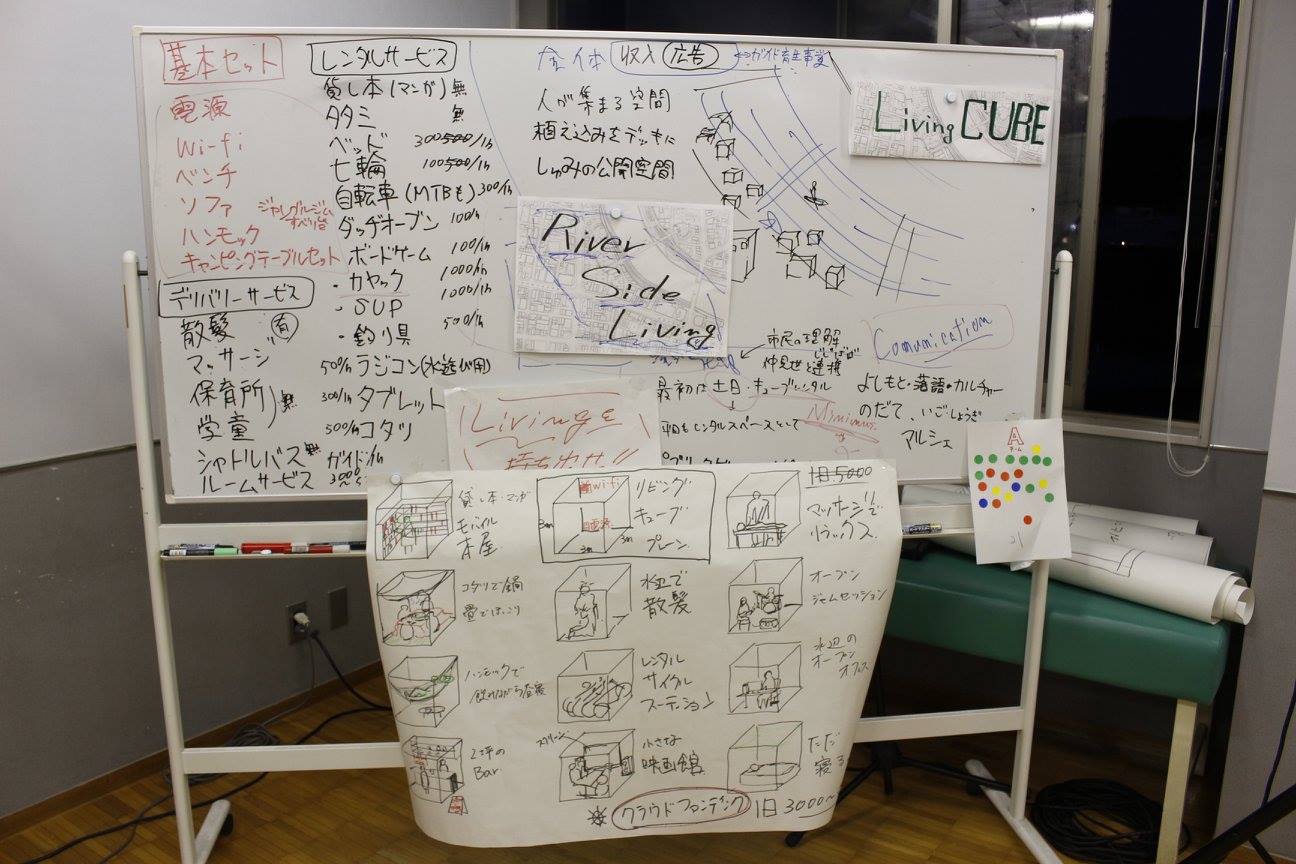 基本セット
電源
Wi-fi
ベンチ
ソファ
ジャングルジム
すべり台
ハンモック
キャンピングテーブルセット
デリバリーサービス
散髪 有
マッサージ
保育所
学童
無
シャトルバス 無
ルームサービス
レンタルサービス
貸し本(マンガ) 無
タタミ 無
ベッド 300500/1h
七輪 100500/1h
自転車(MTBも) 300/1h
ダッヂオーブン 100/h
ボードゲーム 100/1h
・カヤック 1000/h
・SUP 1000/1h
・釣り具 500/1h
50%/h ラジコン(水遊び用)
300/h タブレット
500/h コタツ
ガイド/h
全体 収入 広告
ガイド育生事業
人が集まる空間
植え込みをデッキに
しゅみの公開空間!
Living CUBE
River
Side
Living
市民の理解
仲見世と連携
最初は土日・キューブレンタル
平日もレンタルスペースとして
Minimus.
Comunication
よしもと・落語・カルチャー
のだて、いごしょうぎ
マルシェ
Livingを
持ち出せ!!
A
チーム
貸し本・マンガ
モバイル
本屋
wi-fi
電源
3m
3m
3m
リビング
キューブ
プレーン
1日5000
マッサージで
リラックス
コタツで鍋
畳でほっこり
水辺で
散髪
オープン
ジャムセッション
ハンモックで
飲みながら昼寝
レンタル
サイクル
ステーション
水辺の
オープン
オフィス
2坪の
Bar
スクリーン
小さな
映画館
ただ
寝る
クラウドファンディング 1日3000~